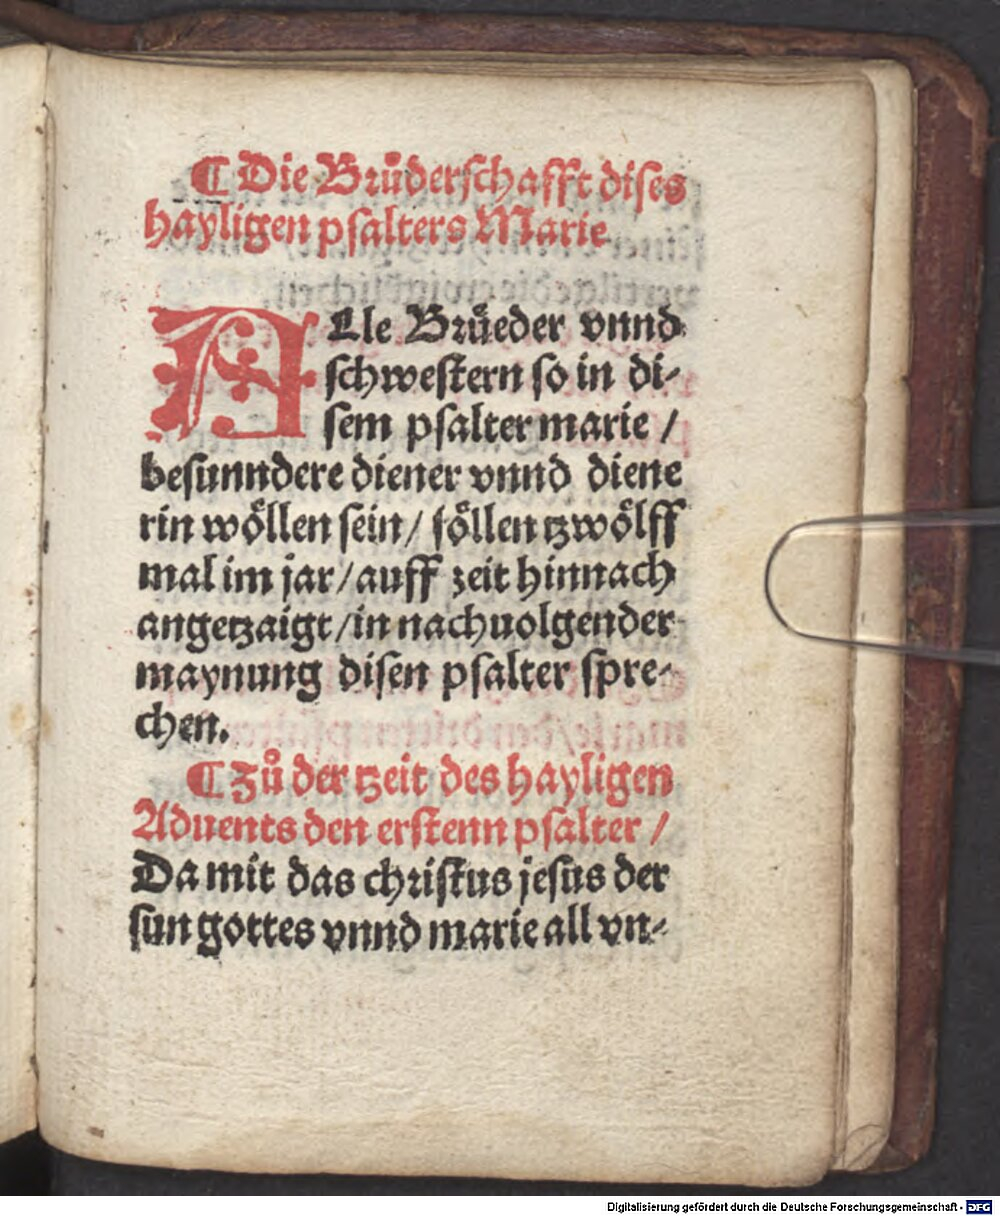 ¶ Die Bruͦderschafft dises
hayligen psalters Marie
ALle Bruͤeder vnnd
schwestern so in di-
sem psalter marie /
besunndere diener vnnd diene
rin woͤllen sein / soͤllen tzwoͤlff
mal im jar / auff zeit hinnach
angetzaigt / in nachuolgender
maynung disen psalter spre-
chen.
¶ Zuͦ der tzeit des hayligen
Aduents den erstenn psalter /
Da mit das christus jesus der
sun gottes vnnd marie all vn-
Digitalisierung gefördert durch die Deutsche Forschungsgemeinschaft - DFG